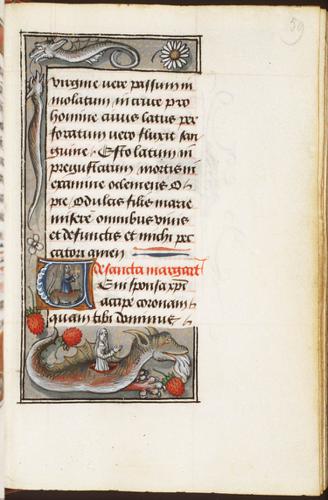 59
virgine vere passum in
molatum in cruce pro
homine cuius latus per
foratum vero fluxit san
guine Esto latum in
pregustatum mortis in
examine o clemens O
pie O dulcis filii marie
misere omnibus vivis
et defunctis et michi pec
catori amen
de sancta margaret
Veni sponsa xpi
accipe coronam
quam tibi dominus